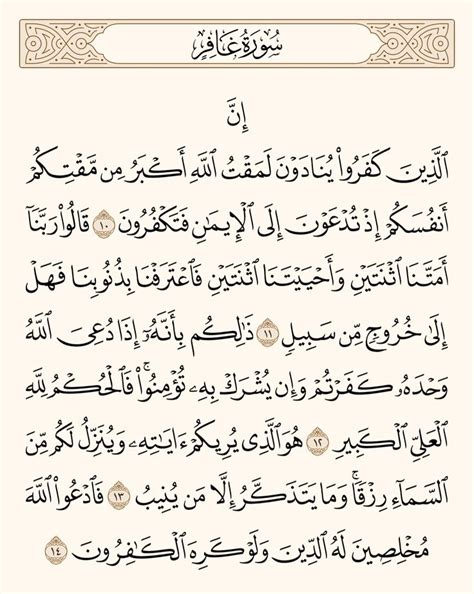 سُورَةُ غَافِرٍ
إِنَّ
ٱلَّذِينَ كَفَرُوا۟ يُنَادَوْنَ لَمَقْتُ ٱللَّهِ أَكْبَرُ مِن مَّقْتِكُمْ
أَنفُسَكُمْ إِذْ تُدْعَوْنَ إِلَى ٱلْإِيمَـٰنِ فَتَكْفُرُونَ ١٠ قَالُوا۟ رَبَّنَآ
أَمَتَّنَا ٱثْنَتَيْنِ وَأَحْيَيْتَنَا ٱثْنَتَيْنِ فَٱعْتَرَفْنَا بِذُنُوبِنَا فَهَلْ
إِلَىٰ خُرُوجٍ مِّن سَبِيلٍ ١١ ذَٰلِكُم بِأَنَّهُۥٓ إِذَا دُعِىَ ٱللَّهُ
وَحْدَهُۥ كَفَرْتُمْ وَإِن يُشْرَكْ بِهِۦ تُؤْمِنُوا۟ ۚ فَٱلْحُكْمُ لِلَّهِ
ٱلْعَلِىِّ ٱلْكَبِيرِ ١٢ هُوَ ٱلَّذِى يُرِيكُمْ ءَايَـٰتِهِۦ وَيُنَزِّلُ لَكُم مِّنَ
ٱلسَّمَآءِ رِزْقًا ۚ وَمَا يَتَذَكَّرُ إِلَّا مَن يُنِيبُ ١٣ فَٱدْعُوا۟ ٱللَّهَ
مُخْلِصِينَ لَهُ ٱلدِّينَ وَلَوْ كَرِهَ ٱلْكَـٰفِرُونَ ١٤